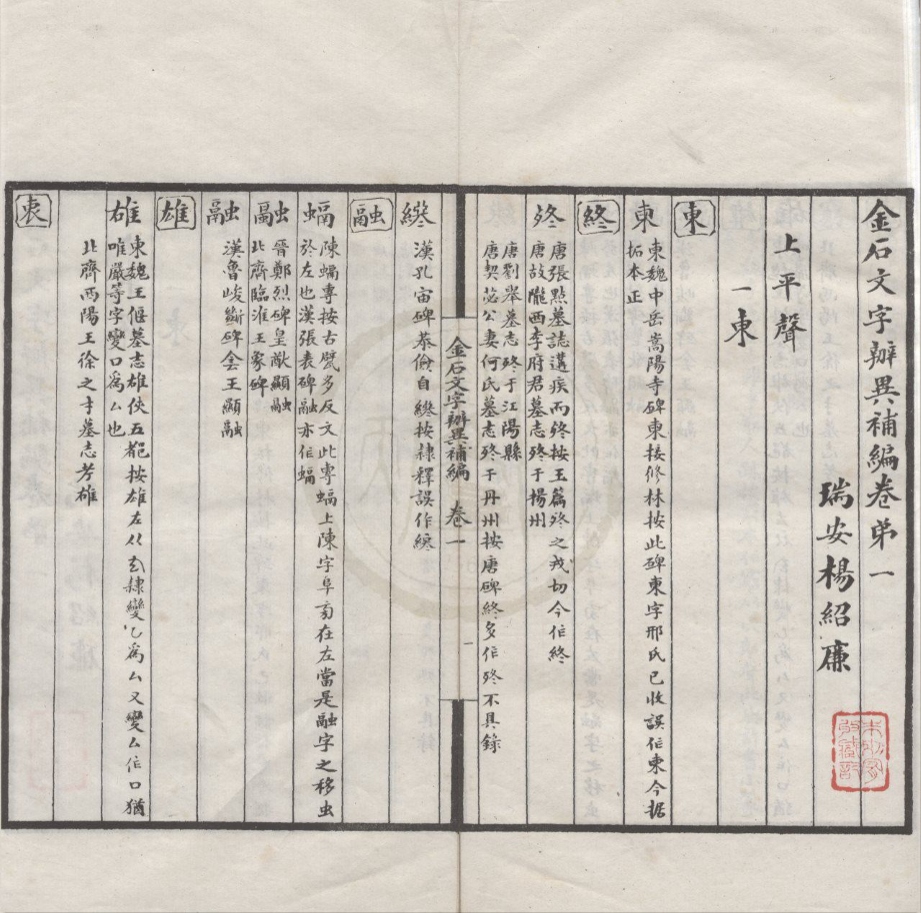 金石文字辨異補編卷弟一
瑞安楊紹廉
上平聲
一東
東
東 東魏中岳嵩陽寺碑東接修林按此碑東字邢氏已收誤作東今据
拓本正
終
終 唐張點墓誌遘疾而終按玉篇終之戎切今作終
唐故隴西李府君墓志終于楊州
唐劉舉墓志終于江陽縣
唐契苾公妻何氏墓志終于丹州按唐碑終多作終不具錄
金石文字辨異補編 卷一
一
漢孔宙碑恭儉自終按隸釋誤作縂
融
陳螎專按古甓多反文此專螎上陳字阜旁在左當是融字之移虫
於左也漢張表碑融亦作螎
晉鄭烈碑皇猷顯融
北齊臨淮王象碑
融 漢魯峻斷碑会王顯融
雄
雄 東魏王偃墓志雄俠五都按雄左从厷隸變乙為厶又變厶作口猶
唯嚴等字變口為厶也
北齊西陽王徐之才墓志考雄
衷